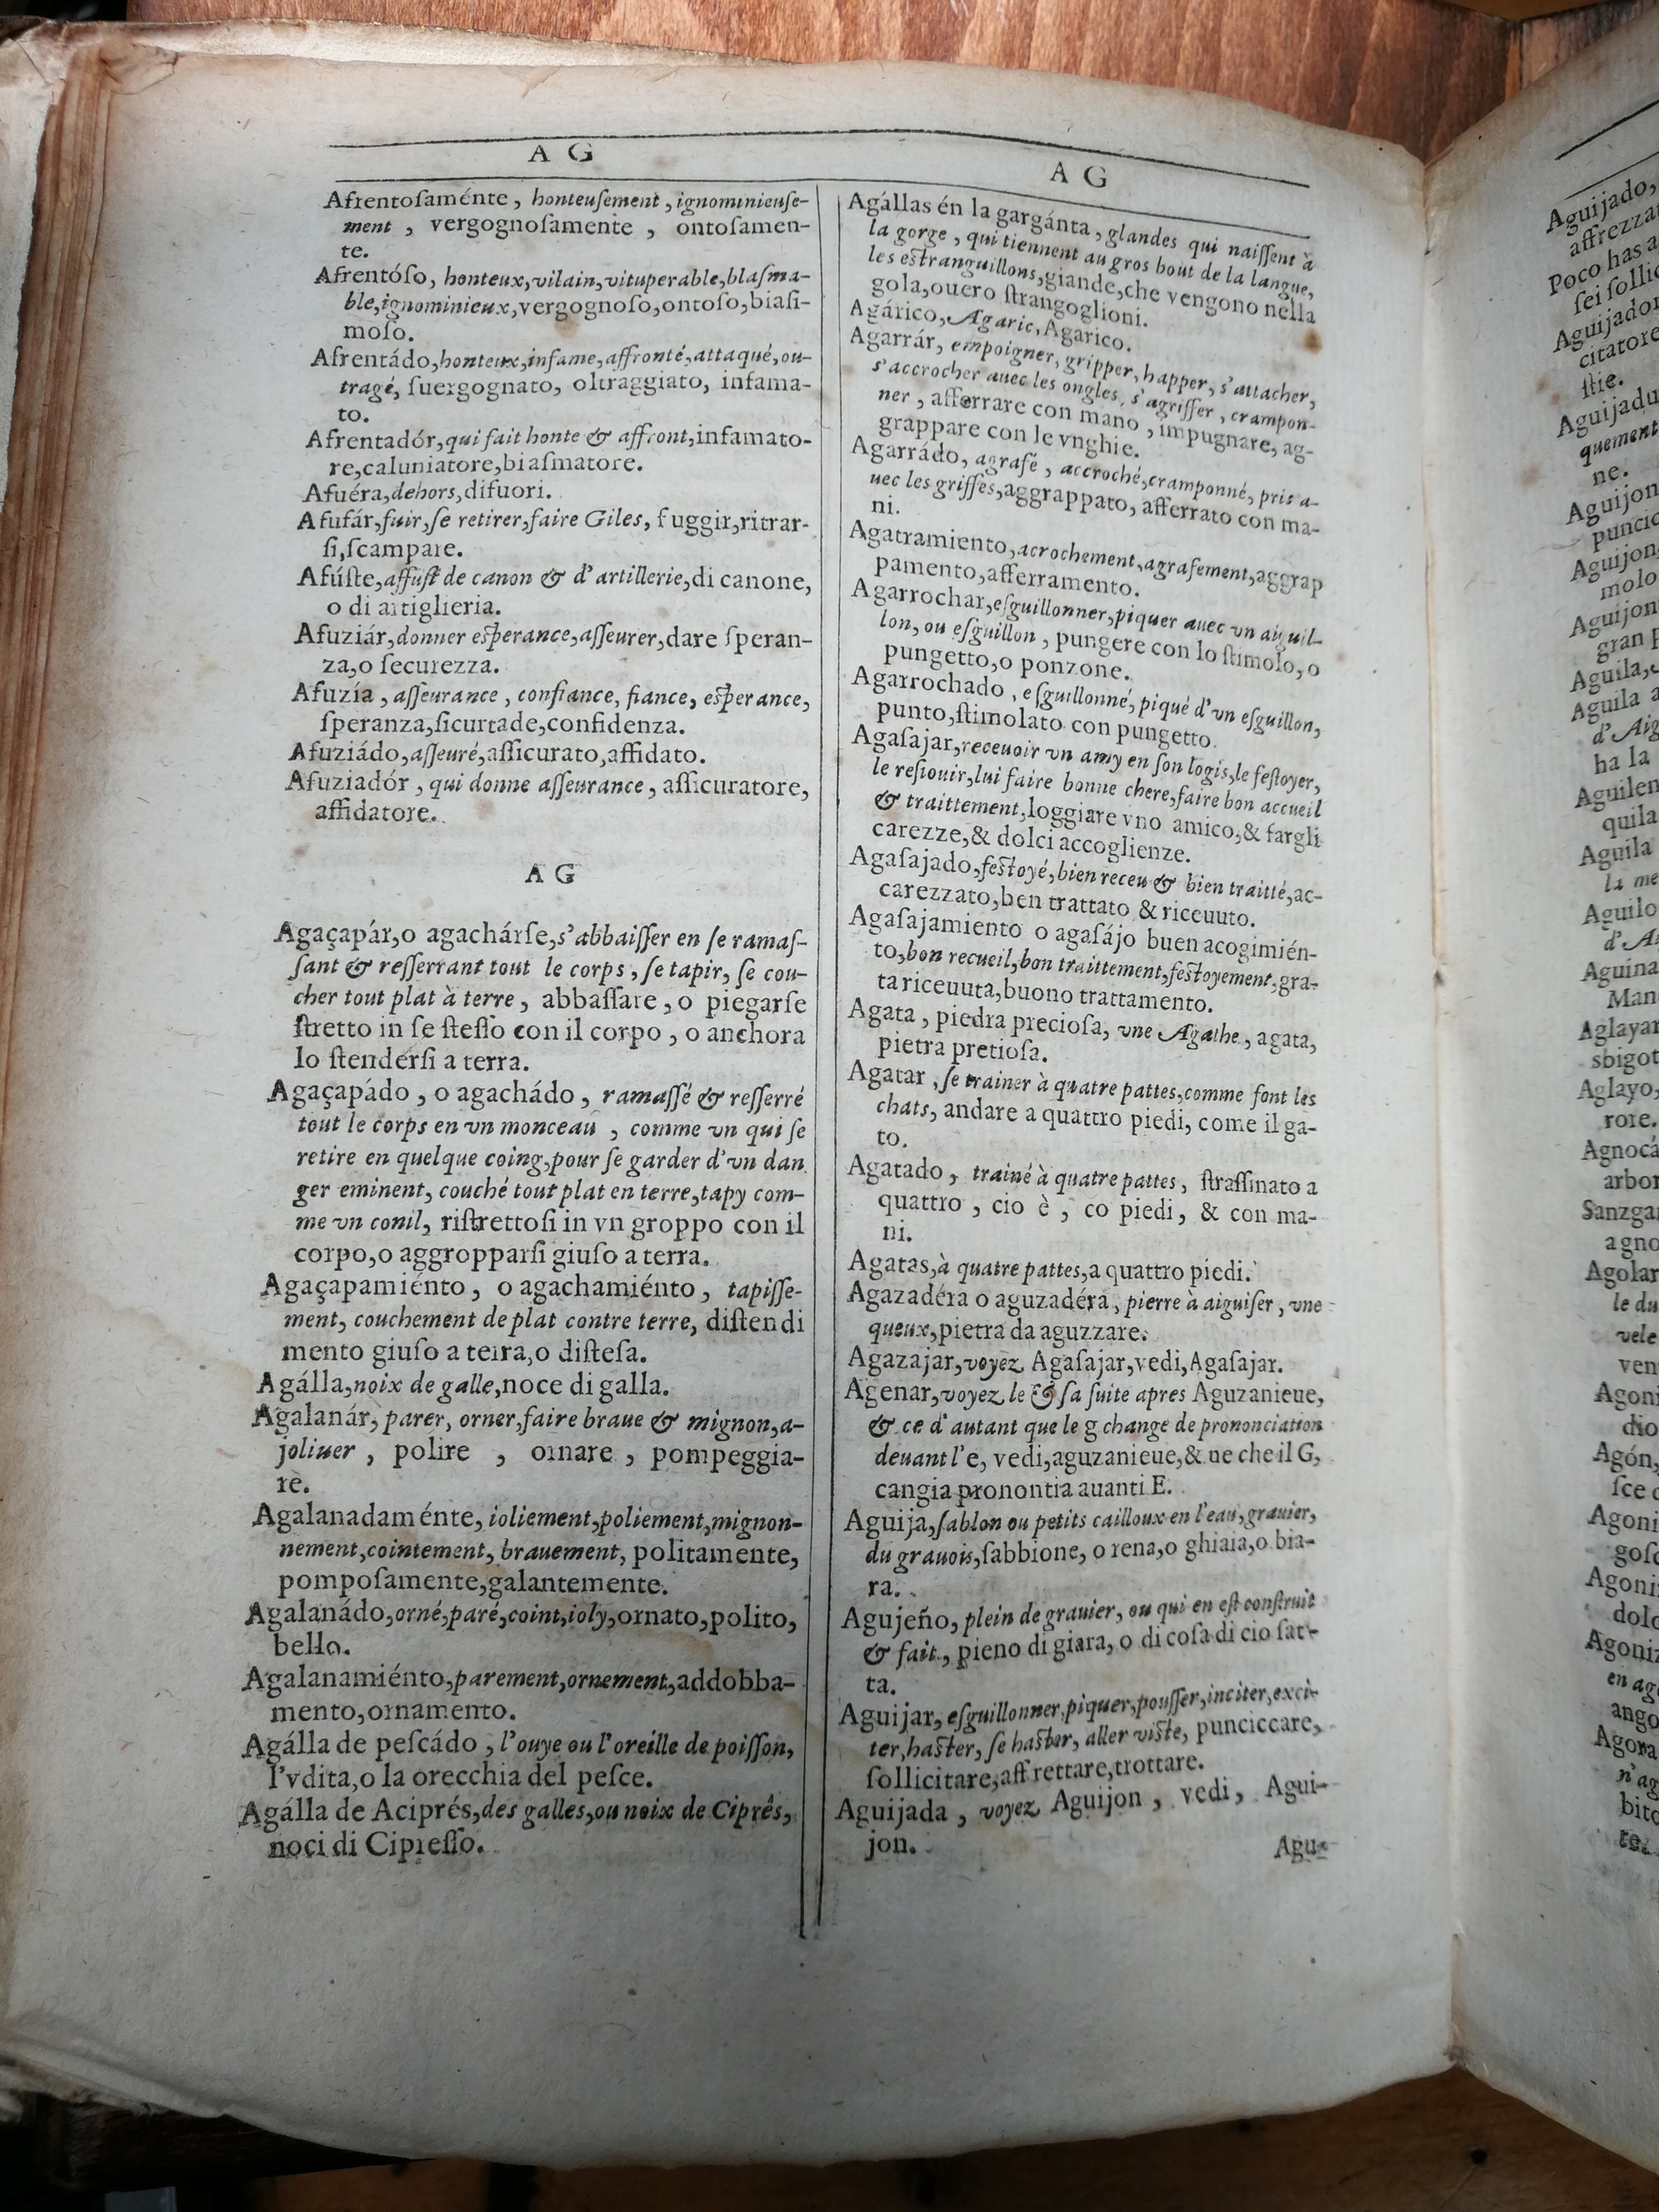 A G
Afrentoſaménte, honteuſement, ignominieuſe-
ment, vergognoſamente, ontoſamen-
te.
Afrentóſo, honteux, vilain, vituperable, blaſma-
ble, ignominieux, vergognoſo, ontoſo, biaſi-
moſo.
Afrentádo, honteux, infame, affronté, attaqué, ou-
tragé, ſuergognato, oltraggiato, infama-
to.
Afrentadór, qui fait honte & affront, infamato-
re, caluniatore, biaſmatore.
Afuéra, dehors, difuori.
Afufár, fuir, ſe retirer, faire Giles, fuggir, ritrar-
ſi, ſcampare.
Afúſte, affuſt de canon & d'artillerie, di canone,
o di artiglieria.
Afuziár, donner eſperance, aſſeurer, dare ſperan-
za, o ſecurezza.
Afuzía, aſſeurance, confiance, fiance, eſperance,
ſperanza, ſicurtade, confidenza.
Afuziádo, aſſeuré, aſſicurato, affidato.
Afuziadór, qui donne aſſeurance, aſſicuratore,
affidatore.
A G
Agaçapár, o agachárſe, s'abbaiſſer en ſe ramaſ-
ſant & reſſerrant tout le corps, ſe tapir, ſe cou-
cher tout plat à terre, abbaſſare, o piegarſe
ſtretto in ſe ſteſſo con il corpo, o anchora
lo ſtenderſi a terra.
Agaçapádo, o agachádo, ramaſſé & reſſerré
tout le corps en vn monceau, comme vn qui ſe
retire en quelque coing, pour ſe garder d'vn dan
ger eminent, couché tout plat en terre, tapy com-
me vn conil, riſtrettoſi in vn groppo con il
corpo, o aggropparſi giuſo a terra.
Agaçapamiénto, o agachamiénto, tapiſſe-
ment, couchement de plat contre terre, diſtendi
mento giuſo a terra, o diſteſa.
Agálla, noix de galle, noce di galla.
Agalanár, parer, orner, faire braue & mignon, a-
joliuer, polire, ornare, pompeggia-
re.
Agalanadaménte, ioliement, poliement, mignon-
nement, cointement, brauement, politamente,
pompoſamente, galantemente.
Agalanádo, orné, paré, coint, ioly, ornato, polito,
bello.
Agalanamiénto, parement, ornement, addobba-
mento, ornamento.
Agálla de peſcádo, l'ouye ou l'oreille de poiſſon,
l'vdita, o la orecchia del peſce.
Agálla de Aciprés, des galles, ou noix de Ciprês,
noci di Cipreſſo.
A G
Agállas én la gargánta, glandes qui naiſſent à
la gorge, qui tiennent au gros bout de la langue,
les eſtranguillons, giande, che vengono nella
gola, ouero ſtrangoglioni.
Agárico, Agaric, Agarico.
Agarrár, empoigner, gripper, happer, s'attacher,
s'accrocher auec les ongles, s'agriffer, crampon-
ner, afferrare con mano, impugnare, ag-
grappare con le vnghie.
Agarrádo, agrafé, accroché, cramponné, pris a-
uec les griffes, aggrappato, afferrato con ma-
ni.
Agatramiento, acrochement, agrafement, aggrap
pamento, afferramento.
Agarrochar, eſguillonner, piquer auec vn aiguil-
lon, ou eſguillon, pungere con lo ſtimolo, o
pungetto, o ponzone.
Agarrochado, eſguillonné, piqué d'vn eſguillon,
punto, ſtimolato con pungetto.
Agaſajar, receuoir vn amy en ſon logis, le feſtoyer,
le reſiouir, lui faire bonne chere, faire bon accueil
& traittement, loggiare vno amico, & fargli
carezze, & dolci accoglienze.
Agaſajado, feſtoyé, bien receu & bien traitté, ac-
carezzato, ben trattato & riceuuto.
Agaſajamiento o agaſájo buen acogimién-
to, bon recueil, bon traittement, feſtoyement, gra-
ta riceuuta, buono trattamento.
Agata, piedra precioſa, vne Agathe, agata,
pietra pretioſa.
Agatar, ſe trainer à quatre pattes, comme font les
chats, andare a quattro piedi, come il ga-
to.
Agatado, trainé à quatre pattes, ſtraſſinato a
quattro, cio è, co piedi, & con ma-
ni.
Agatas, à quatre pattes, a quattro piedi.
Agazadéra o aguzadéra, pierre à aiguiſer, vne
queux, pietra da aguzzare.
Agazajar, voyez Agaſajar, vedi, Agaſajar.
Agenar, voyez le & ſa ſuite apres Aguzanieue,
& ce d'autant que le g change de prononciation
deuant l'e, vedi, aguzanieue, & ne che il G,
cangia pronontia auanti E.
Aguija, ſablon ou petits cailloux en l'eau, grauier,
du grauois, ſabbione, o rena, o ghiaia, o bia-
ra.
Agujeño, plein de grauier, ou qui en eſt conſtruit
& fait, pieno di giara, o di coſa di cio fat-
ta.
Aguijar, eſguillonner, piquer, pouſſer, inciter, exci-
ter, haſter, ſe haſter, aller viſte, punciccare,
ſollicitare, affrettare, trottare.
Aguijada, voyez Aguijon, vedi, Agui-
jon.
Agu-
Aguijado,
Poco has a
ſei ſollic
Aguijador
citatore
ſtie.
Aguijadu
quement
ne.
Aguijon
puncic
Aguijon
molo
Aguijon
gran p
Aguila,
Aguila a
d'Aig
ha la
Aguilen
quila
Aguila
la me
Aguilo
Aguina
Man
Aglayar
sbigot
Aglayo,
rore.
Agnocá
arbor
Sanzgar
agno
Agolar
le du
vele
ven
Agoni
dio
Agón,
ſce
Agoni
goſ
Agoni
dolo
Agoniz
en ago
ango
Agora
n'ag
bito
re.